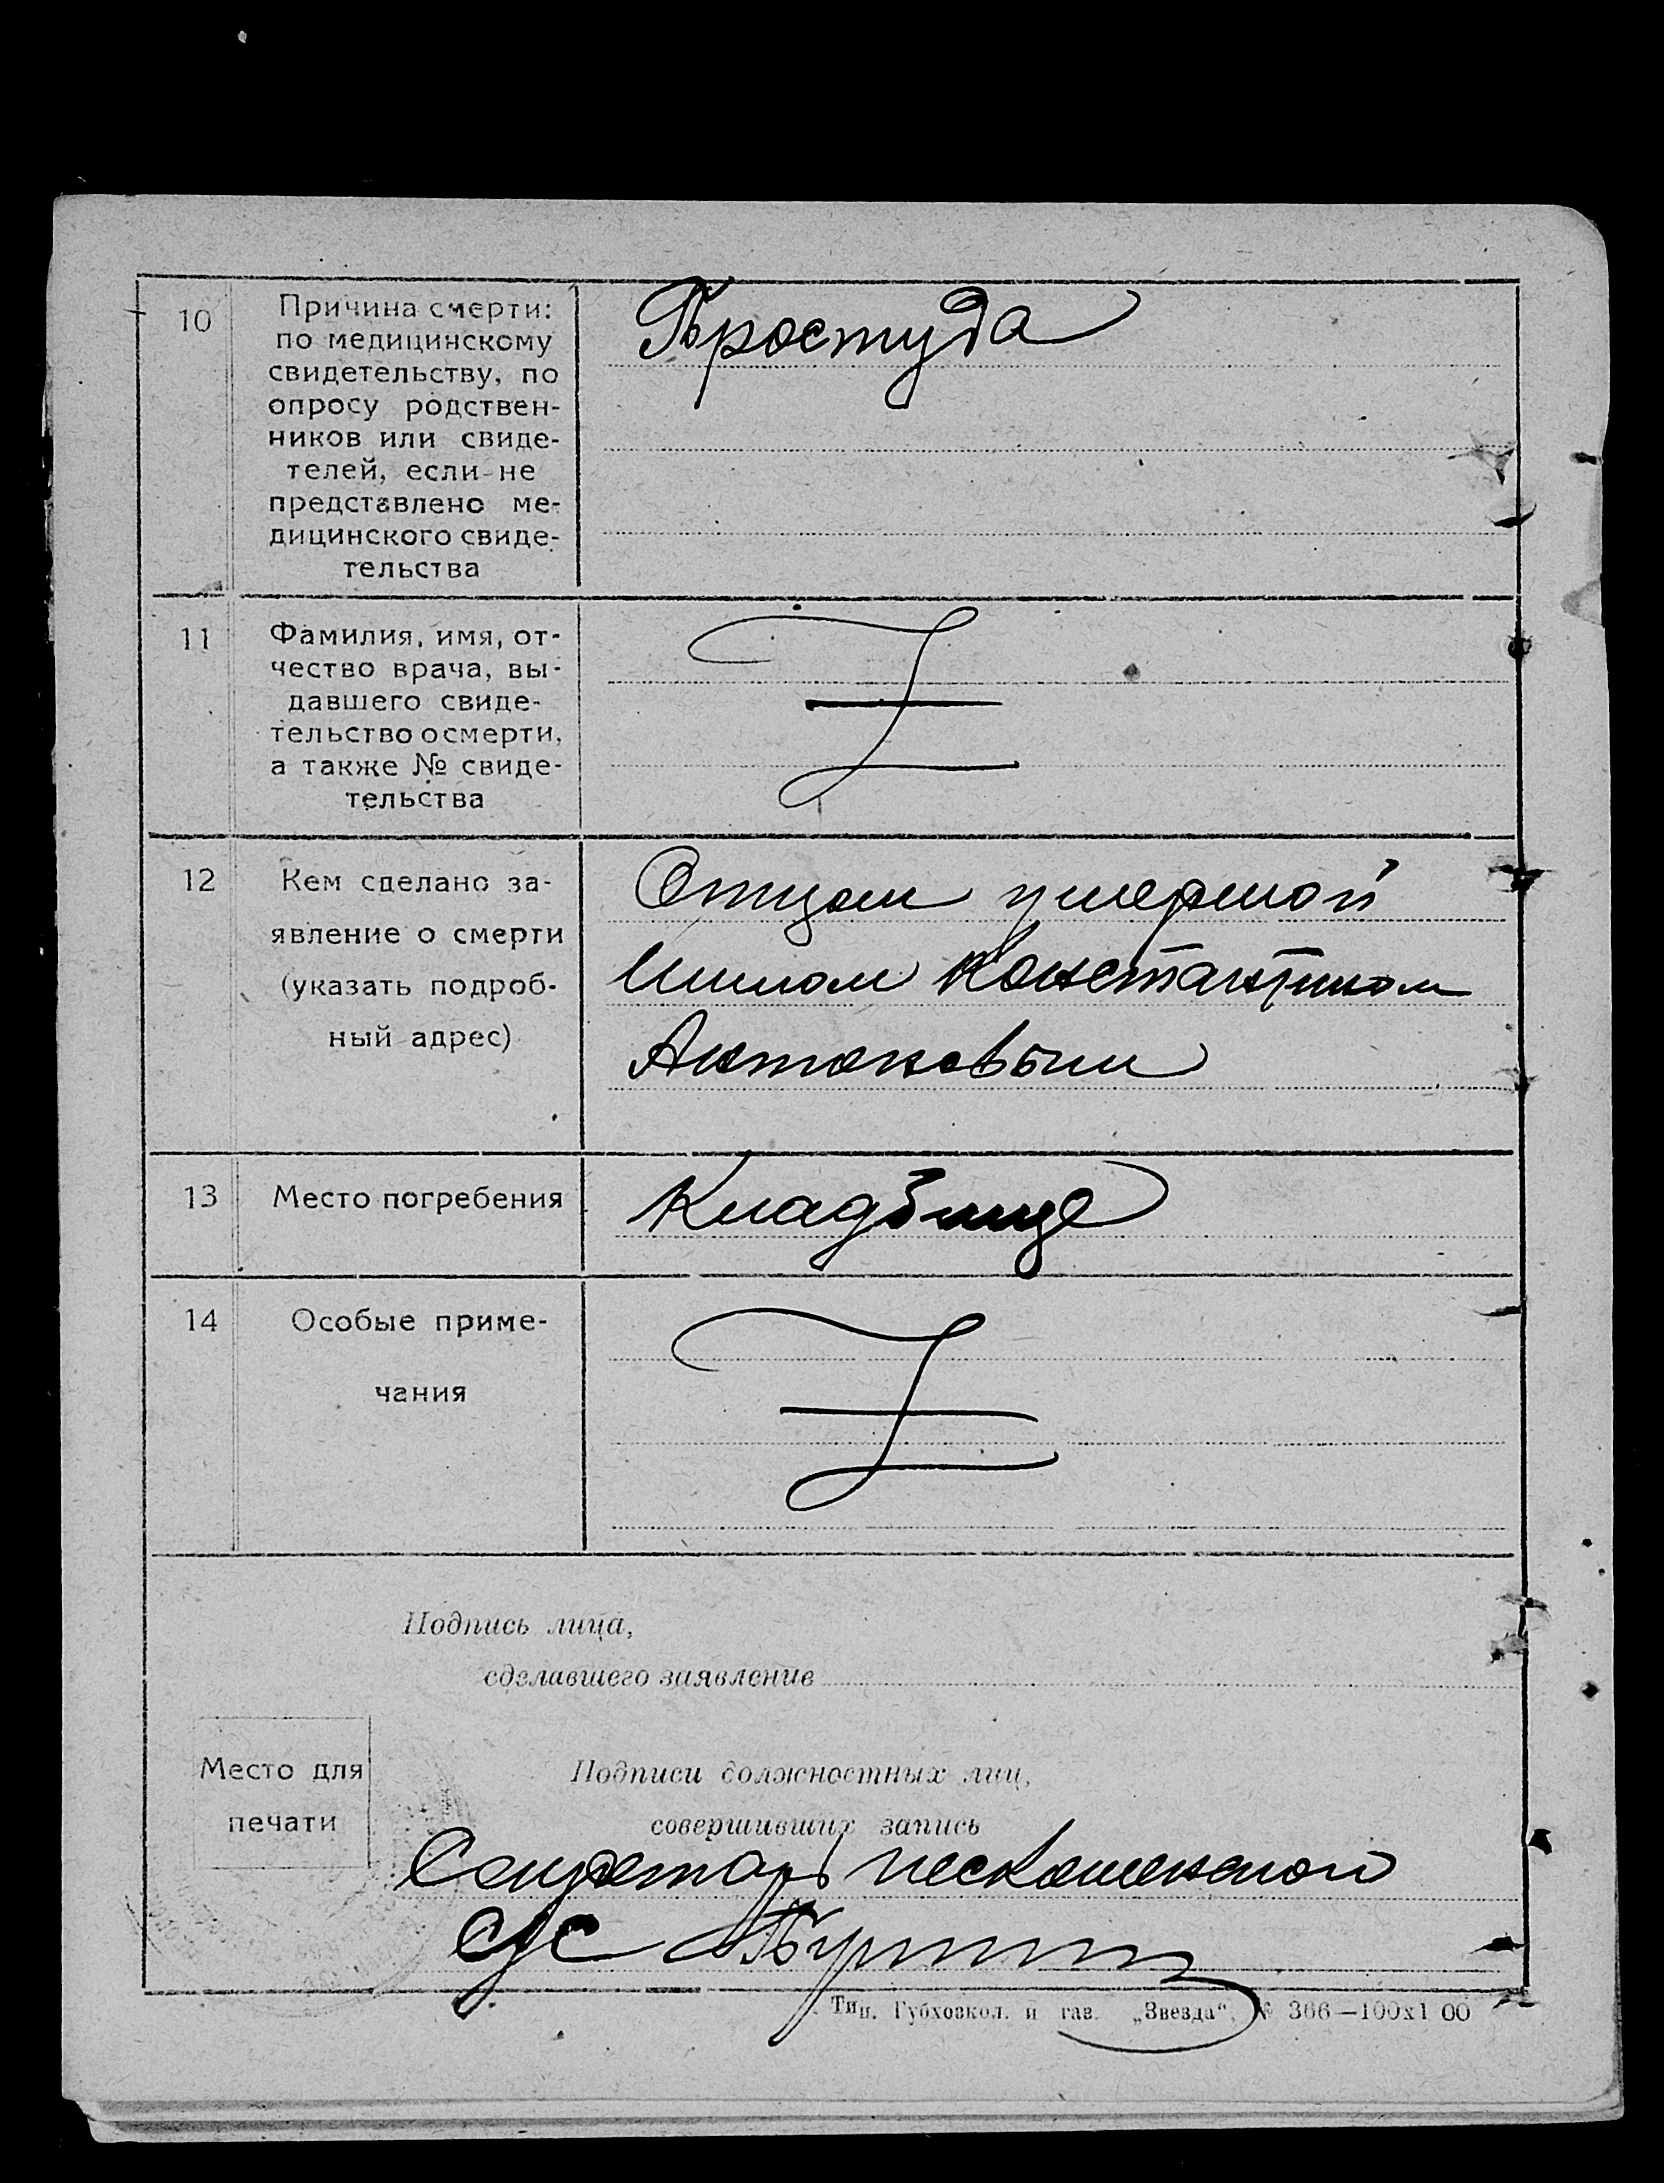 10 Причина смерти: Простуда
по медицинскому
свидетельству, по
опросу родствен-
ников или свиде-
телей, если не
представлено ме-
дицинского свиде-
тельства
11 Фамилия, имя, от-
чество врача, вы-
давшего свиде-
тельство о смерти,
а также № свиде-
тельства
12 Кем сделано за- Отцом умершой
явление о смерти
(указать подроб- Константином
ный адрес) Антоновым
13 Место погребения Кладбище
14 Особые приме-
чания
Подпись лица,
сделавшего заявление
Место для Подписи должностных лиц,
печати совершивших запись
Секретарь
с/с
Тип. Губхозкол. и газ. „Звезда“, № 366—100х1 00